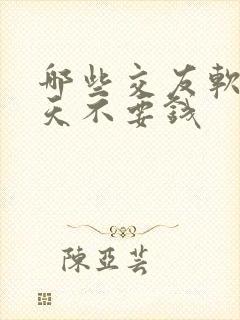 那些交友軟
天不要錢
陳亞芸